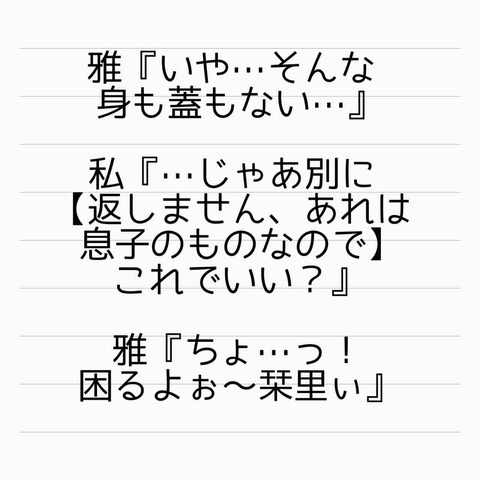 雅『いや…そんな
身も蓋もない…』
私『…じゃあ別に
【返しません、あれは
息子のものなので】
これでいい？』
雅『ちょ…っ！
困るよぉ〜栞里ぃ』